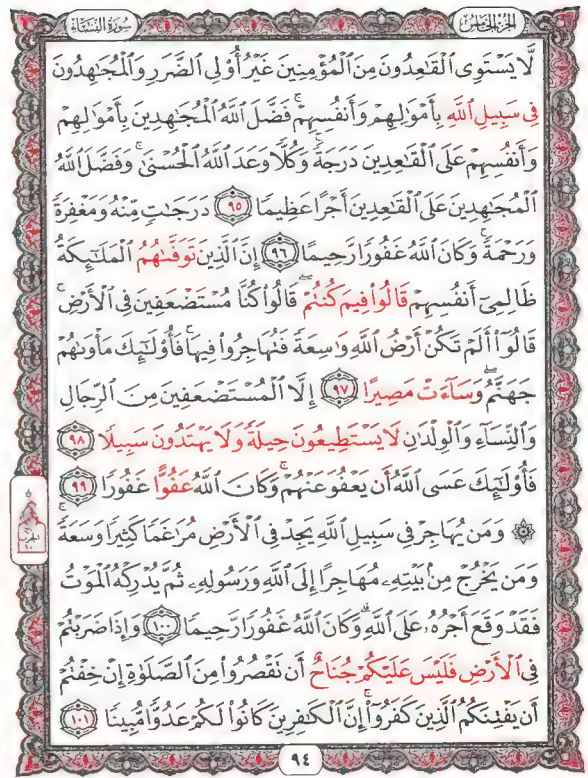 سُورَةُ النِّسَاءِ
الجُزْءُ الخَامِسُ
لَّا يَسْتَوِي الْقَاعِدُونَ مِنَ الْمُؤْمِنِينَ غَيْرُ أُوْلِي الضَّرَرِ وَالْمُجَاهِدُونَ
فِي سَبِيلِ اللَّهِ بِأَمْوَالِهِمْ وَأَنفُسِهِمْ ۚ فَضَّلَ اللَّهُ الْمُجَاهِدِينَ بِأَمْوَالِهِمْ
وَأَنفُسِهِمْ عَلَى الْقَاعِدِينَ دَرَجَةً ۚ وَكُلًّا وَعَدَ اللَّهُ الْحُسْنَىٰ ۚ وَفَضَّلَ اللَّهُ
الْمُجَاهِدِينَ عَلَى الْقَاعِدِينَ أَجْرًا عَظِيمًا ٩٥ دَرَجَاتٍ مِّنْهُ وَمَغْفِرَةً
وَرَحْمَةً ۚ وَكَانَ اللَّهُ غَفُورًا رَّحِيمًا ٩٦ إِنَّ الَّذِينَ تَوَفَّاهُمُ الْمَلَائِكَةُ
ظَالِمِي أَنفُسِهِمْ قَالُوا فِيمَ كُنتُمْ ۖ قَالُوا كُنَّا مُسْتَضْعَفِينَ فِي الْأَرْضِ ۚ
قَالُوا أَلَمْ تَكُنْ أَرْضُ اللَّهِ وَاسِعَةً فَتُهَاجِرُوا فِيهَا ۚ فَأُولَٰئِكَ مَأْوَاهُمْ
جَهَنَّمُ ۖ وَسَاءَتْ مَصِيرًا ٩٧ إِلَّا الْمُسْتَضْعَفِينَ مِنَ الرِّجَالِ
وَالنِّسَاءِ وَالْوِلْدَانِ لَا يَسْتَطِيعُونَ حِيلَةً وَلَا يَهْتَدُونَ سَبِيلًا ٩٨
فَأُولَٰئِكَ عَسَى اللَّهُ أَن يَعْفُوَ عَنْهُمْ ۚ وَكَانَ اللَّهُ عَفُوًّا غَفُورًا ٩٩
۞ وَمَن يُهَاجِرْ فِي سَبِيلِ اللَّهِ يَجِدْ فِي الْأَرْضِ مُرَاغَمًا كَثِيرًا وَسَعَةً ۚ
وَمَن يَخْرُجْ مِن بَيْتِهِ مُهَاجِرًا إِلَى اللَّهِ وَرَسُولِهِ ثُمَّ يُدْرِكْهُ الْمَوْتُ
فَقَدْ وَقَعَ أَجْرُهُ عَلَى اللَّهِ ۗ وَكَانَ اللَّهُ غَفُورًا رَّحِيمًا ١٠٠ وَإِذَا ضَرَبْتُمْ
فِي الْأَرْضِ فَلَيْسَ عَلَيْكُمْ جُنَاحٌ أَن تَقْصُرُوا مِنَ الصَّلَاةِ إِنْ خِفْتُمْ
أَن يَفْتِنَكُمُ الَّذِينَ كَفَرُوا ۚ إِنَّ الْكَافِرِينَ كَانُوا لَكُمْ عَدُوًّا مُّبِينًا ١٠١
٩٤